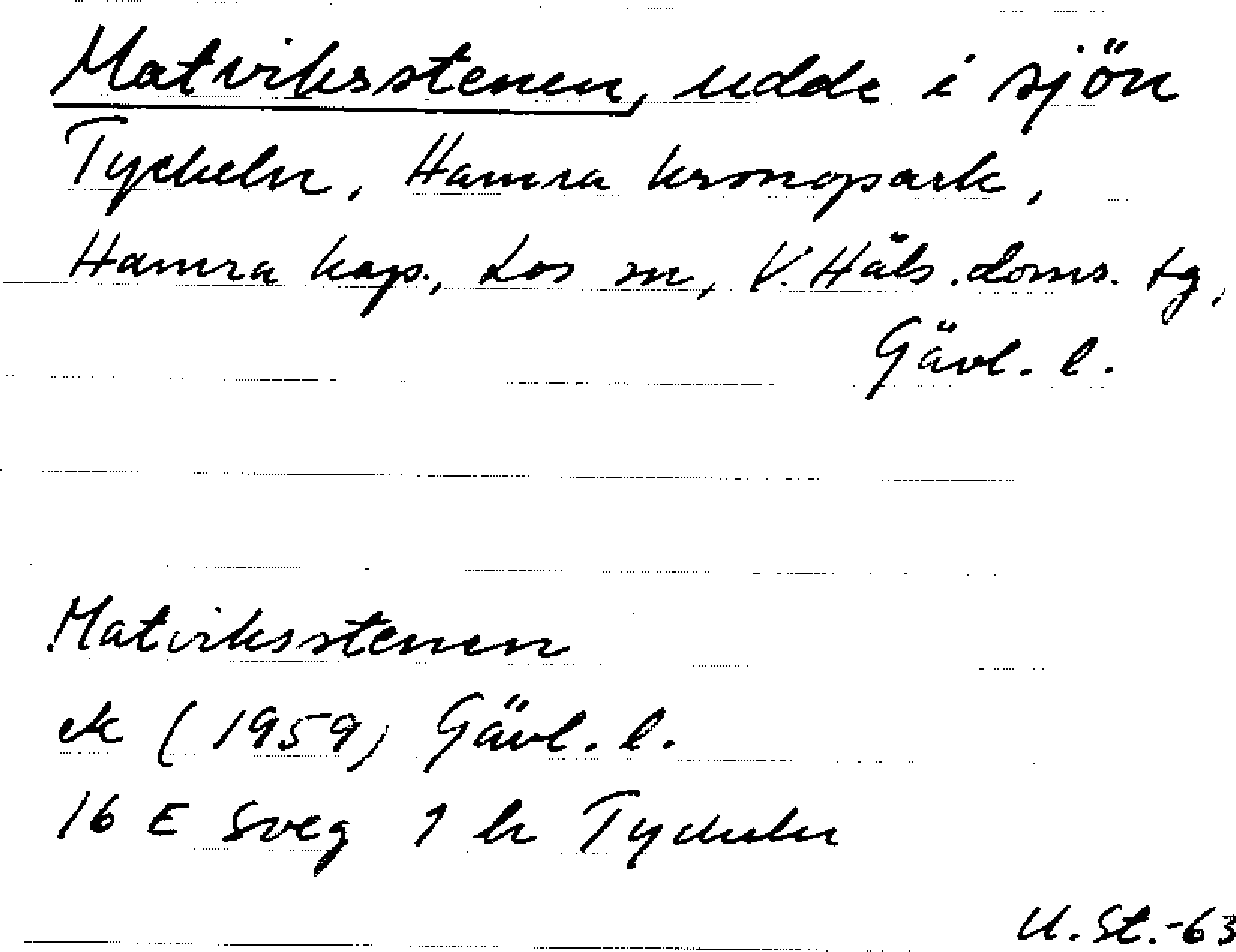 Matviksstenen, udde i sjön
Tyckeln, Hamra kronopark,
Hamra kap., Los sn, V. Häls. doms. tg,
Gävl. l.
Matviksstenen
ek (1959) Gävl. l.
16 E Sveg 1 h Tyckeln
U. St.-63